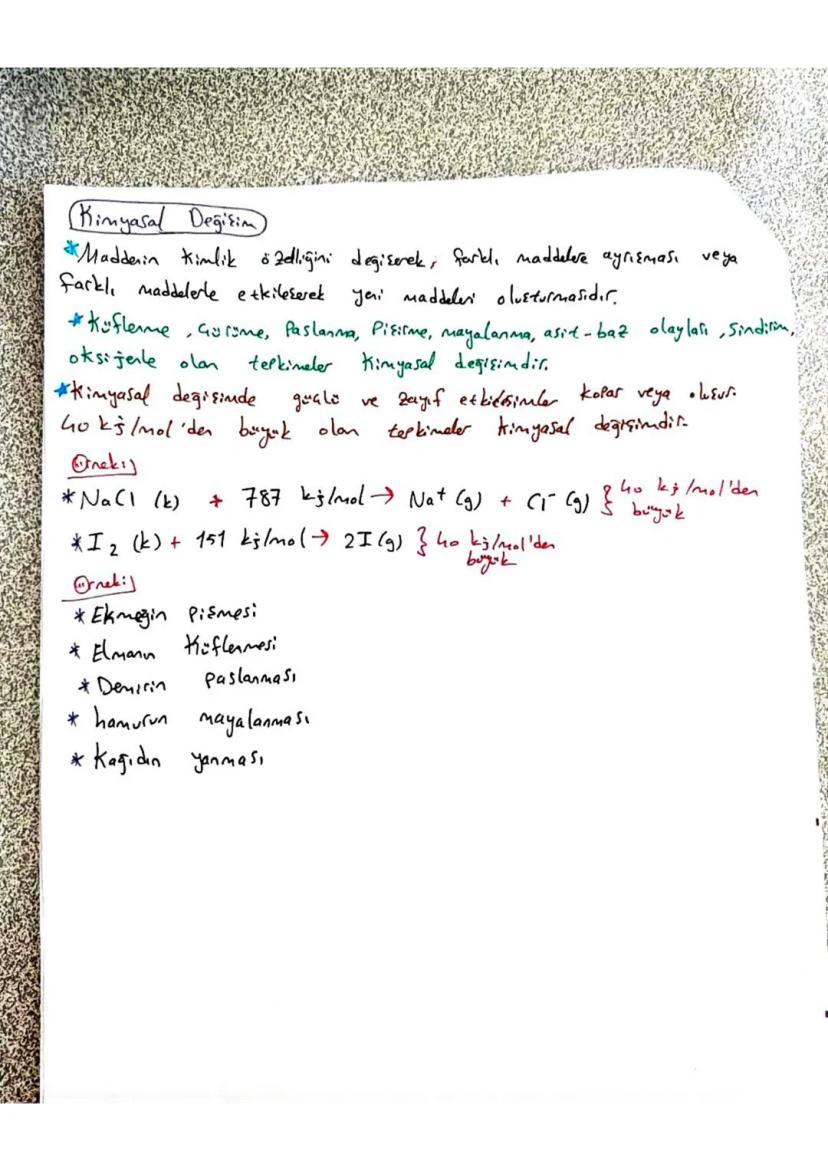 Kimyasal Değişim
*Maddenin kimlik özelliğini değişerek, farklı maddelere ayrışması veya
farklı maddelerle etkileşerek yeni maddeler oluşturmasıdır.
*Küflenme, Çürüme, Paslanma, Pişirme, mayalanma, asit-baz olayları, Sindirim,
oksijenle olan tepkimeler kimyasal değişimdir.
*Kimyasal değişimde güçlü ve zayıf etkileşimler kopar veya oluşur.
40 kj/mol'den büyük olan tepkimeler kimyasal değişimdir.
Örnek:)
*NaCl (k) + 787 kj/mol → Na⁺ (g) + Cl⁻ (g) } 40 kj/mol'den
büyük
*I₂ (k) + 151 kj/mol → 2I (g) } 40 kj/mol'den
büyük
Örnek:)
* Ekmeğin Pişmesi
* Elmanın Küflenmesi
* Demirin paslanması
* hamurun mayalanması
* Kağıdın yanması